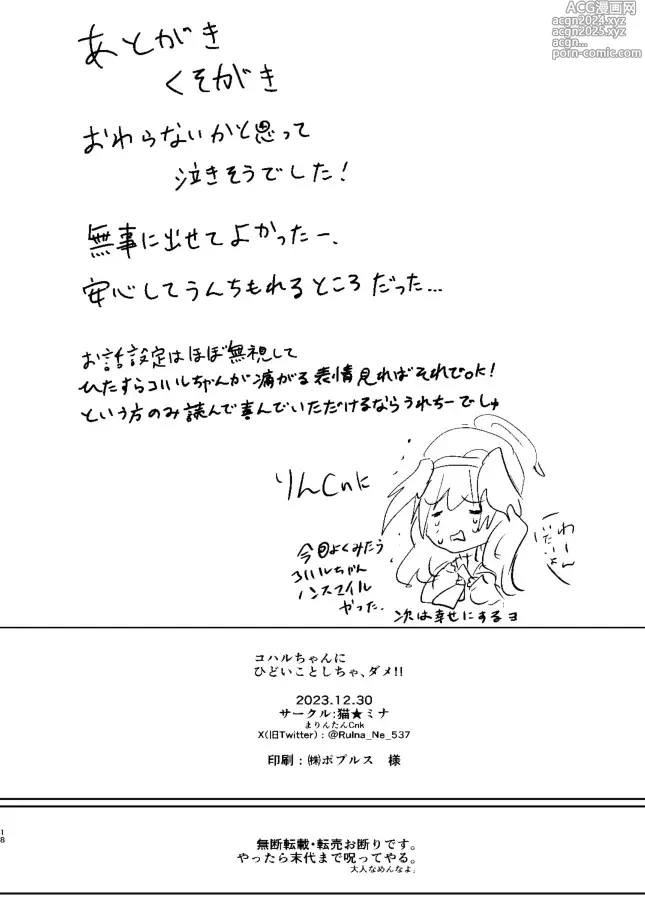 ACG漫画网
acgn2024.xyz
acgn2025.xyz
acgn...
porn-comic.com
あとがき
くそがき
おわらないかと思って
泣きそうでした!
無事に出せてよかったー、
安心してうんちもれるところだった...
お話設定はほぼ無視して
ひたすらコハルちゃんが痛がる表情見ればそれでok!
という方のみ読んで喜んでいただけるならうれちーでしゅ
りんCnに
わーん
いたいよぉ
今回よくみたう
コハルちゃん
ノンスマイル
やった.
次は幸せにするヨ
コハルちゃんに
ひどいことしちゃ、ダメ!!
2023.12.30
サークル:猫★ミナ
まりんたんCnk
X(旧Twitter):@RuIna_Ne_537
印刷:㈱ポプルス 様
18
無断転載・転売お断りです。
やったら末代まで呪ってやる。
大人なめんなよ。